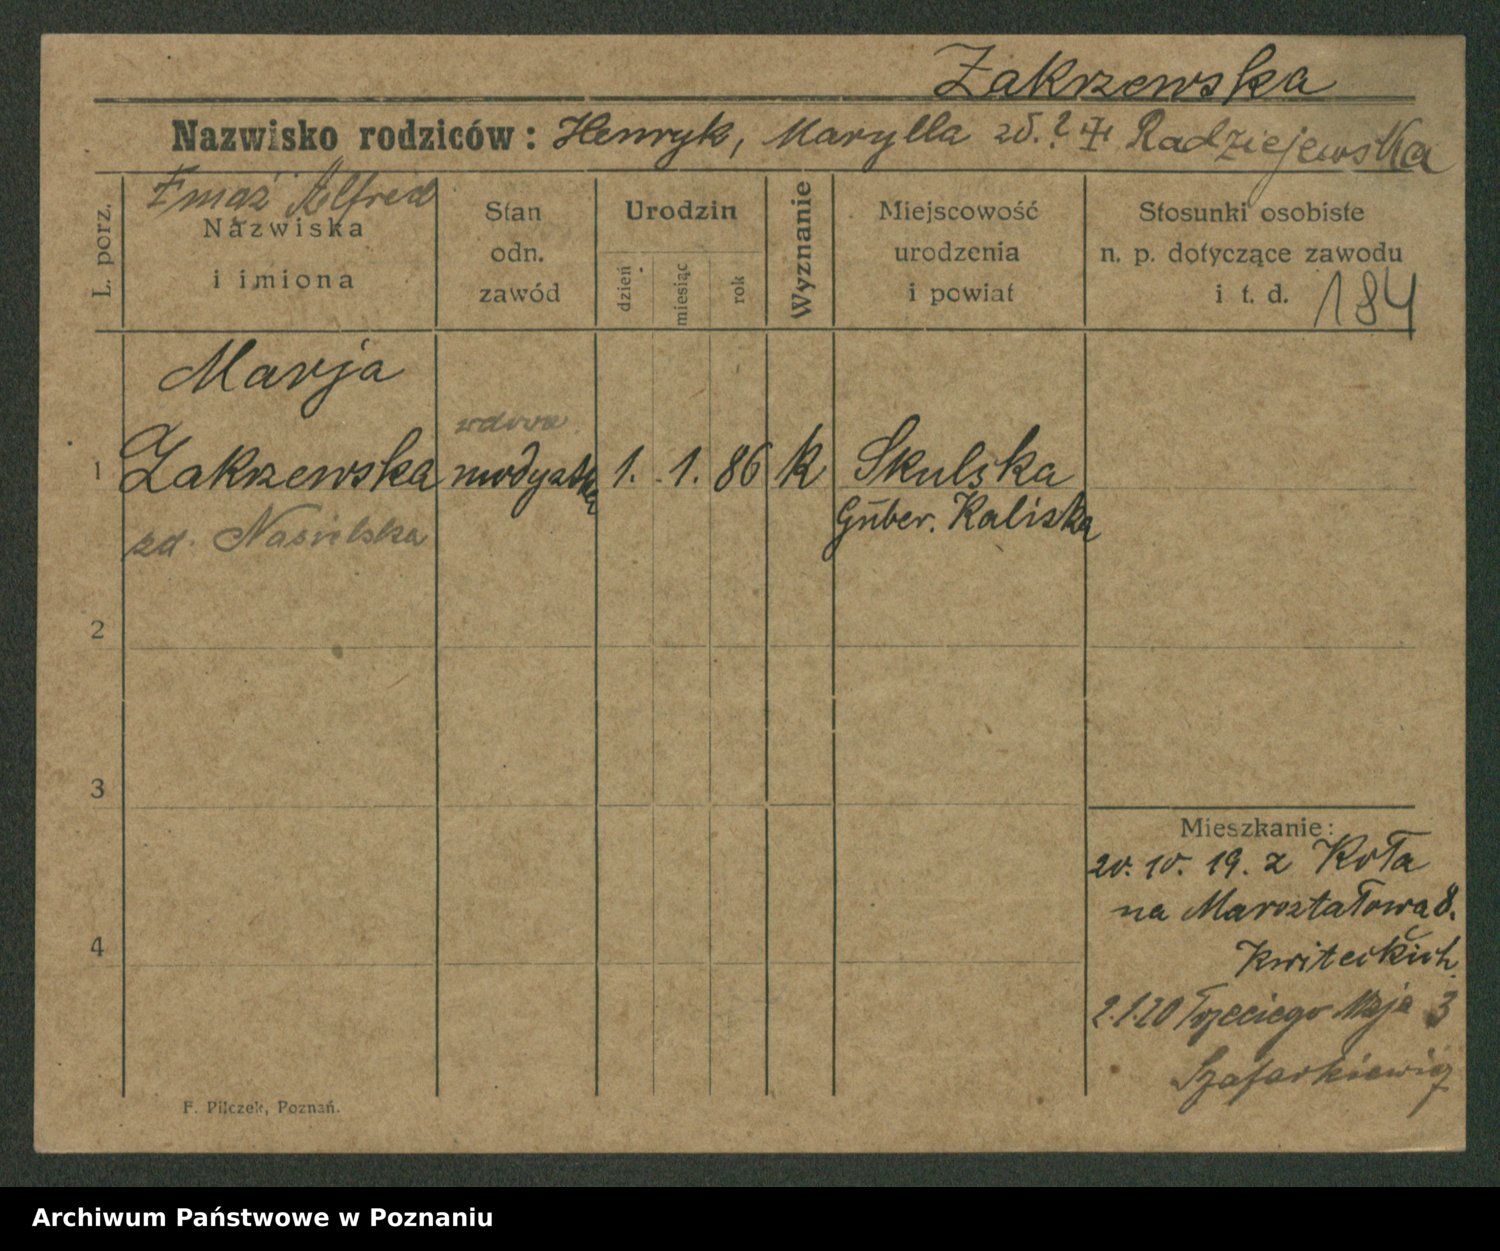 Zakrzewska
Nazwisko rodziców: Henryk, Marylla zd. ? ‡ Radziejewska
‡ mąż Alfred
L. porz.
Nazwiska
i imiona
Stan
odn.
zawód
Urodzin
dzień
miesiąc
rok
Wyznanie
Miejscowość
urodzenia
i powiat
Stosunki osobiste
n. p. dotyczące zawodu
i t. d. 184
Marja
wdowa
1 Zakrzewska modystka 1. 1. 86 k Skulska
Guber. Kaliska
zd. Nasielska
2
3
Mieszkanie:
20. 10. 19. z Koła
na Marształową 8.
Kwiteckich
4
2.1.20 Trzeciego Maja 3
Szafarkiewicz
F. Pilczek, Poznań.
Archiwum Państwowe w Poznaniu